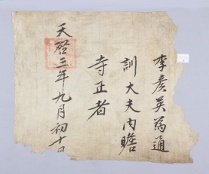 李彦英爲通
訓大夫內贍
寺正者
天啓三年九月初十日